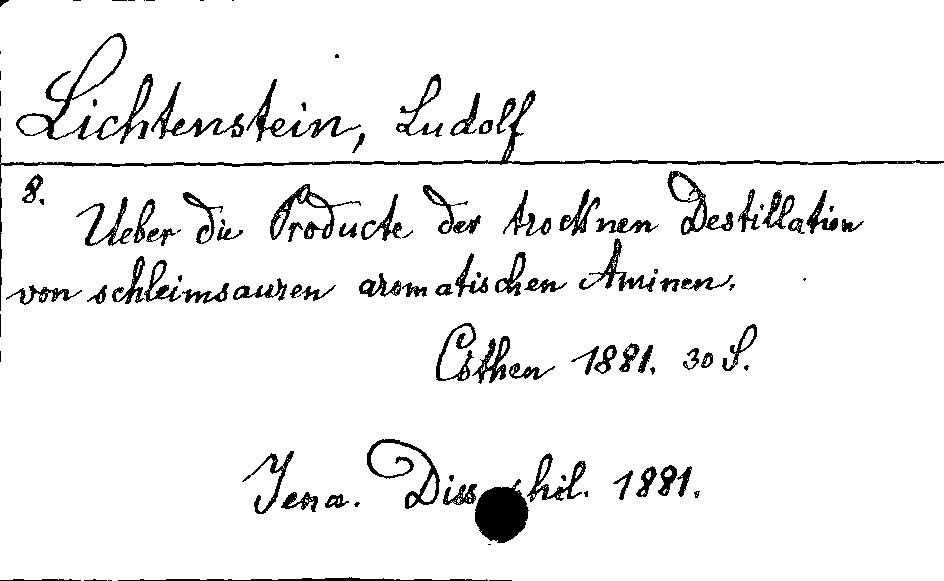 Lichtenstein, Ludolf
8.
Ueber die Producte der trocknen Destillation
von schleimsauren aromatischen Aminen.
Cöthen 1881. 30 S.
Jena. Diss. phil. 1881.